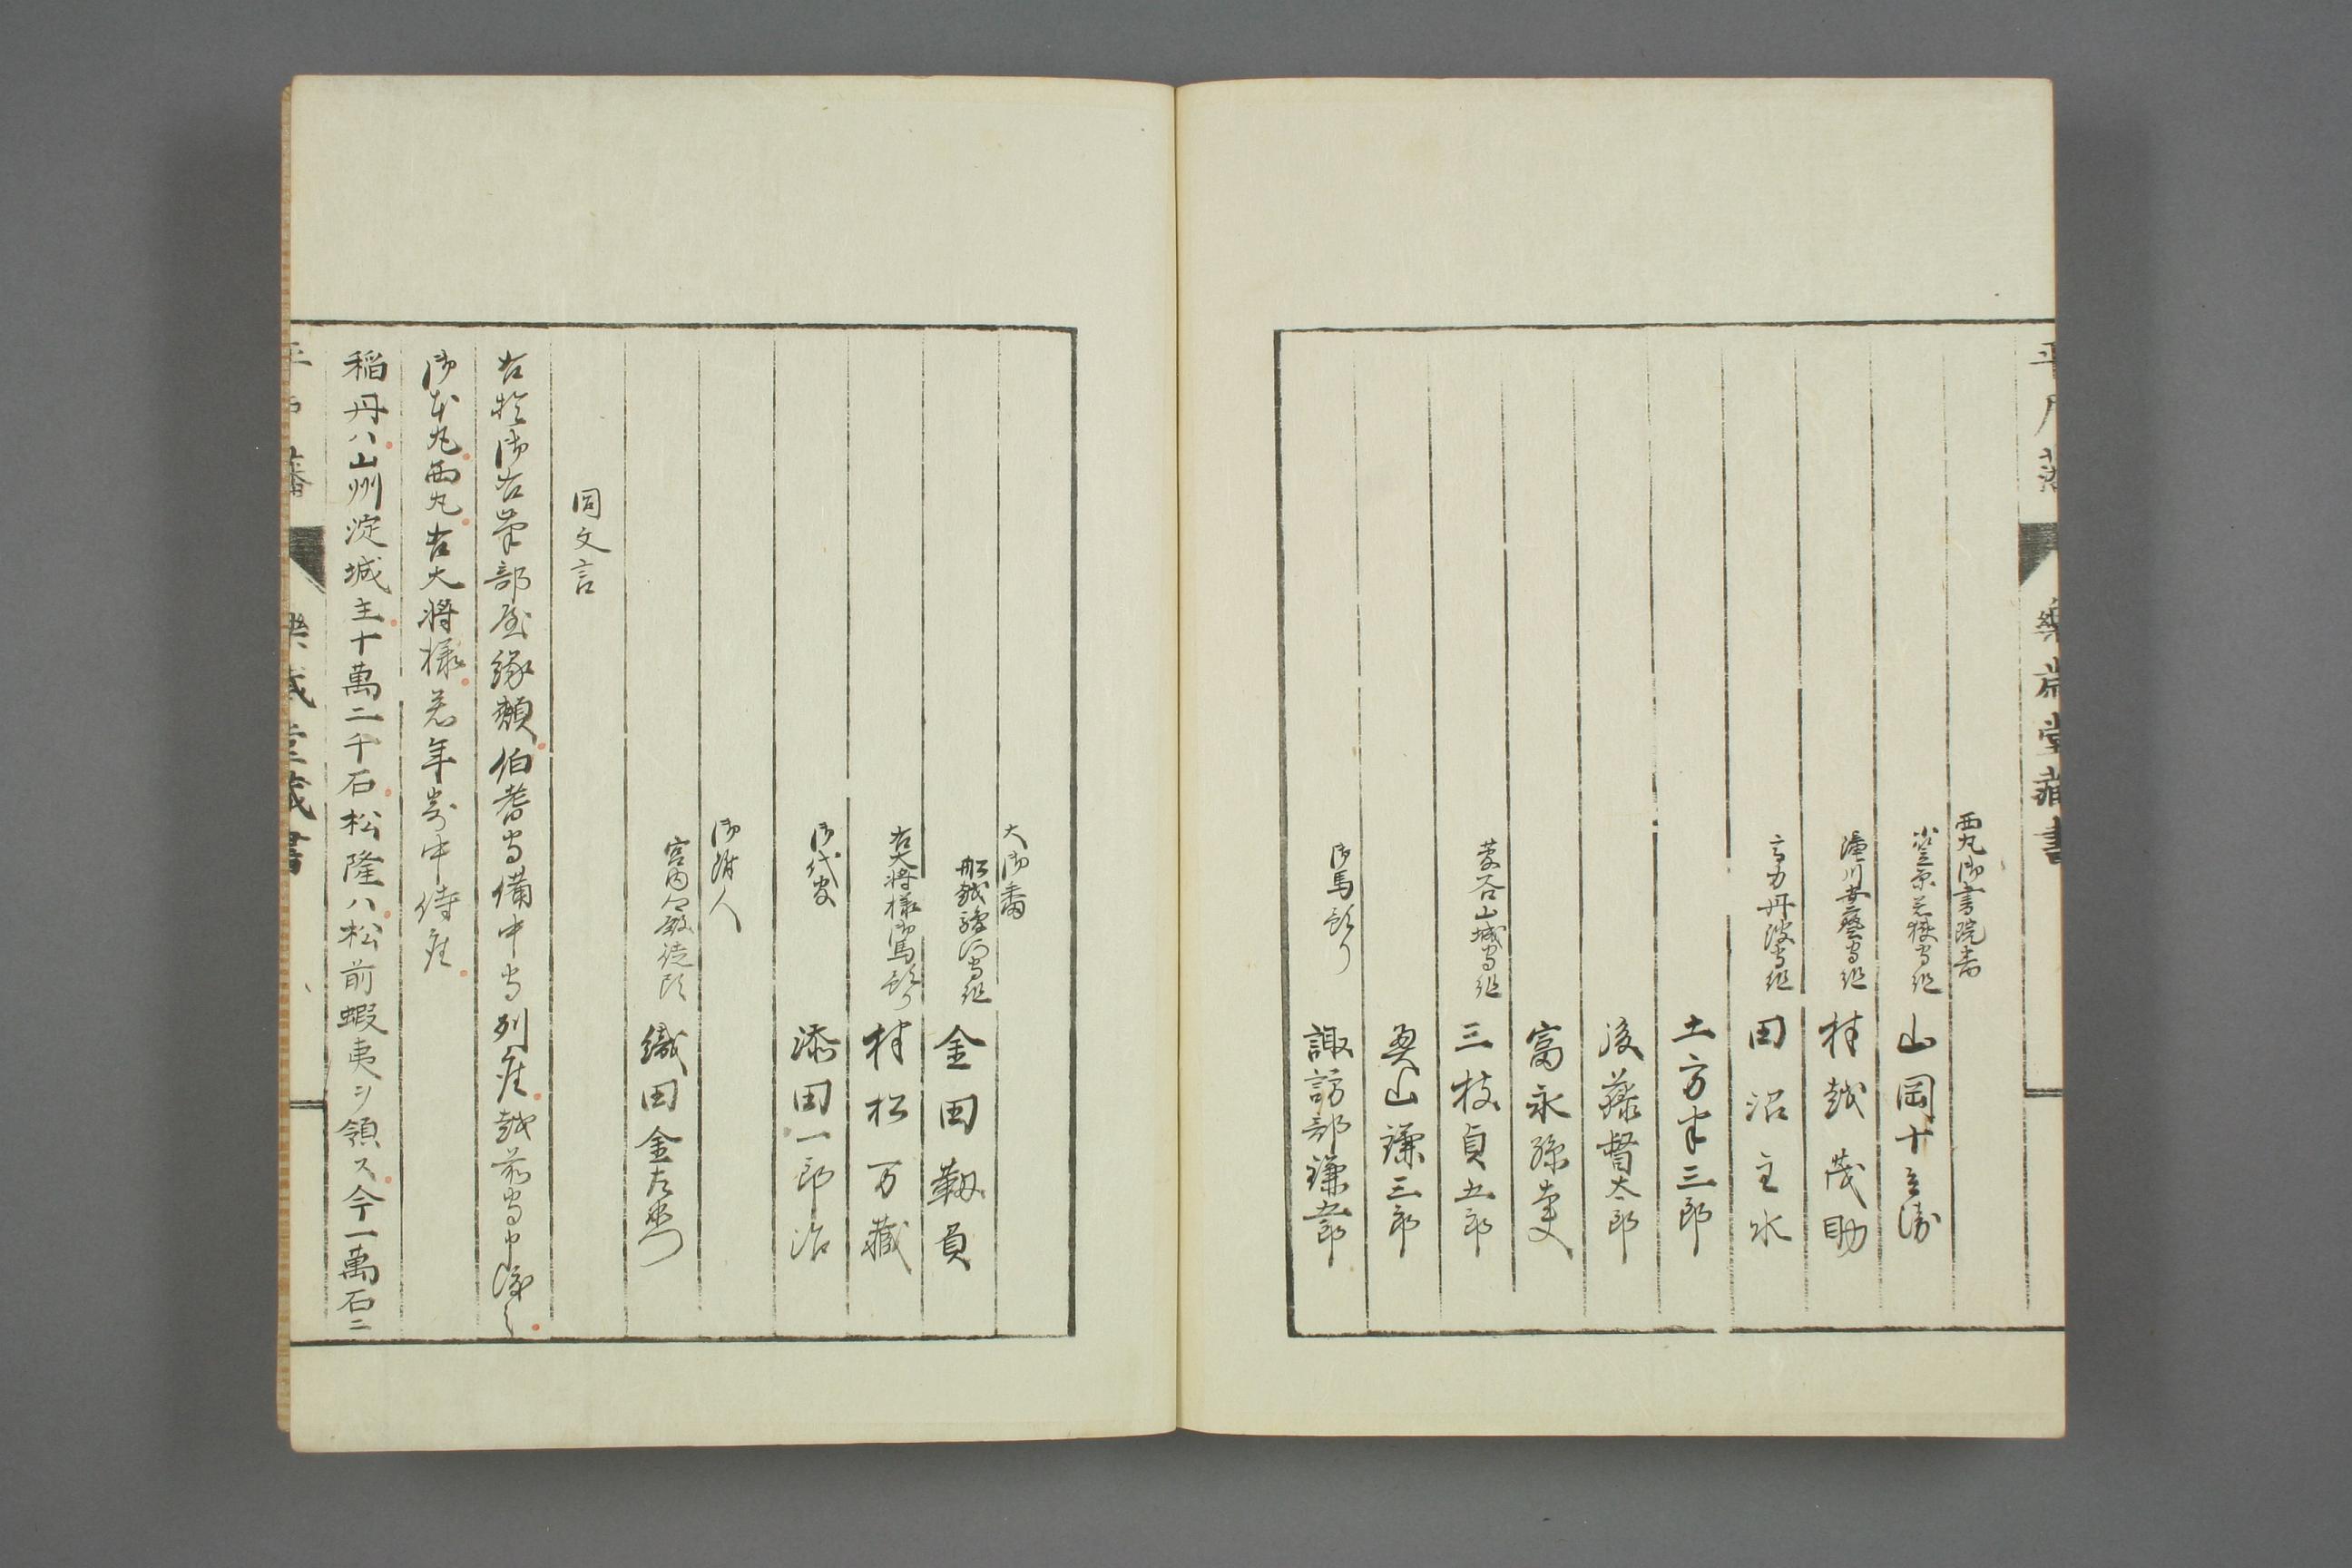 平戸藩 樂歳堂藏書
西丸御書院番
小笠原若狭守組 山岡十兵衛
瀧川安藝守組 村越茂助
高力丹波守組 田沼主水
土方半三郎
後藤督太郎
富永孫大夫
蒙谷山城守組 三枝貞五郎
奥山謙三郎
御馬預り 諏訪部謙五郎
大御番
船越駿河守組 金田靱負
右大将様御馬預り 村松万藏
御代官 添田一郎治
御附人
宮内卿殿徒頭 織田金左衛門
同文言
右於御右筆部屋縁頬伯耆守備中守列座越前守申渡之
御本丸西丸右大将様若年寄中侍座
稲丹ハ山州淀城主十萬二千石松隆ハ松前蝦夷ヲ領ス今一萬石ニ
平戸藩 樂歳堂藏書